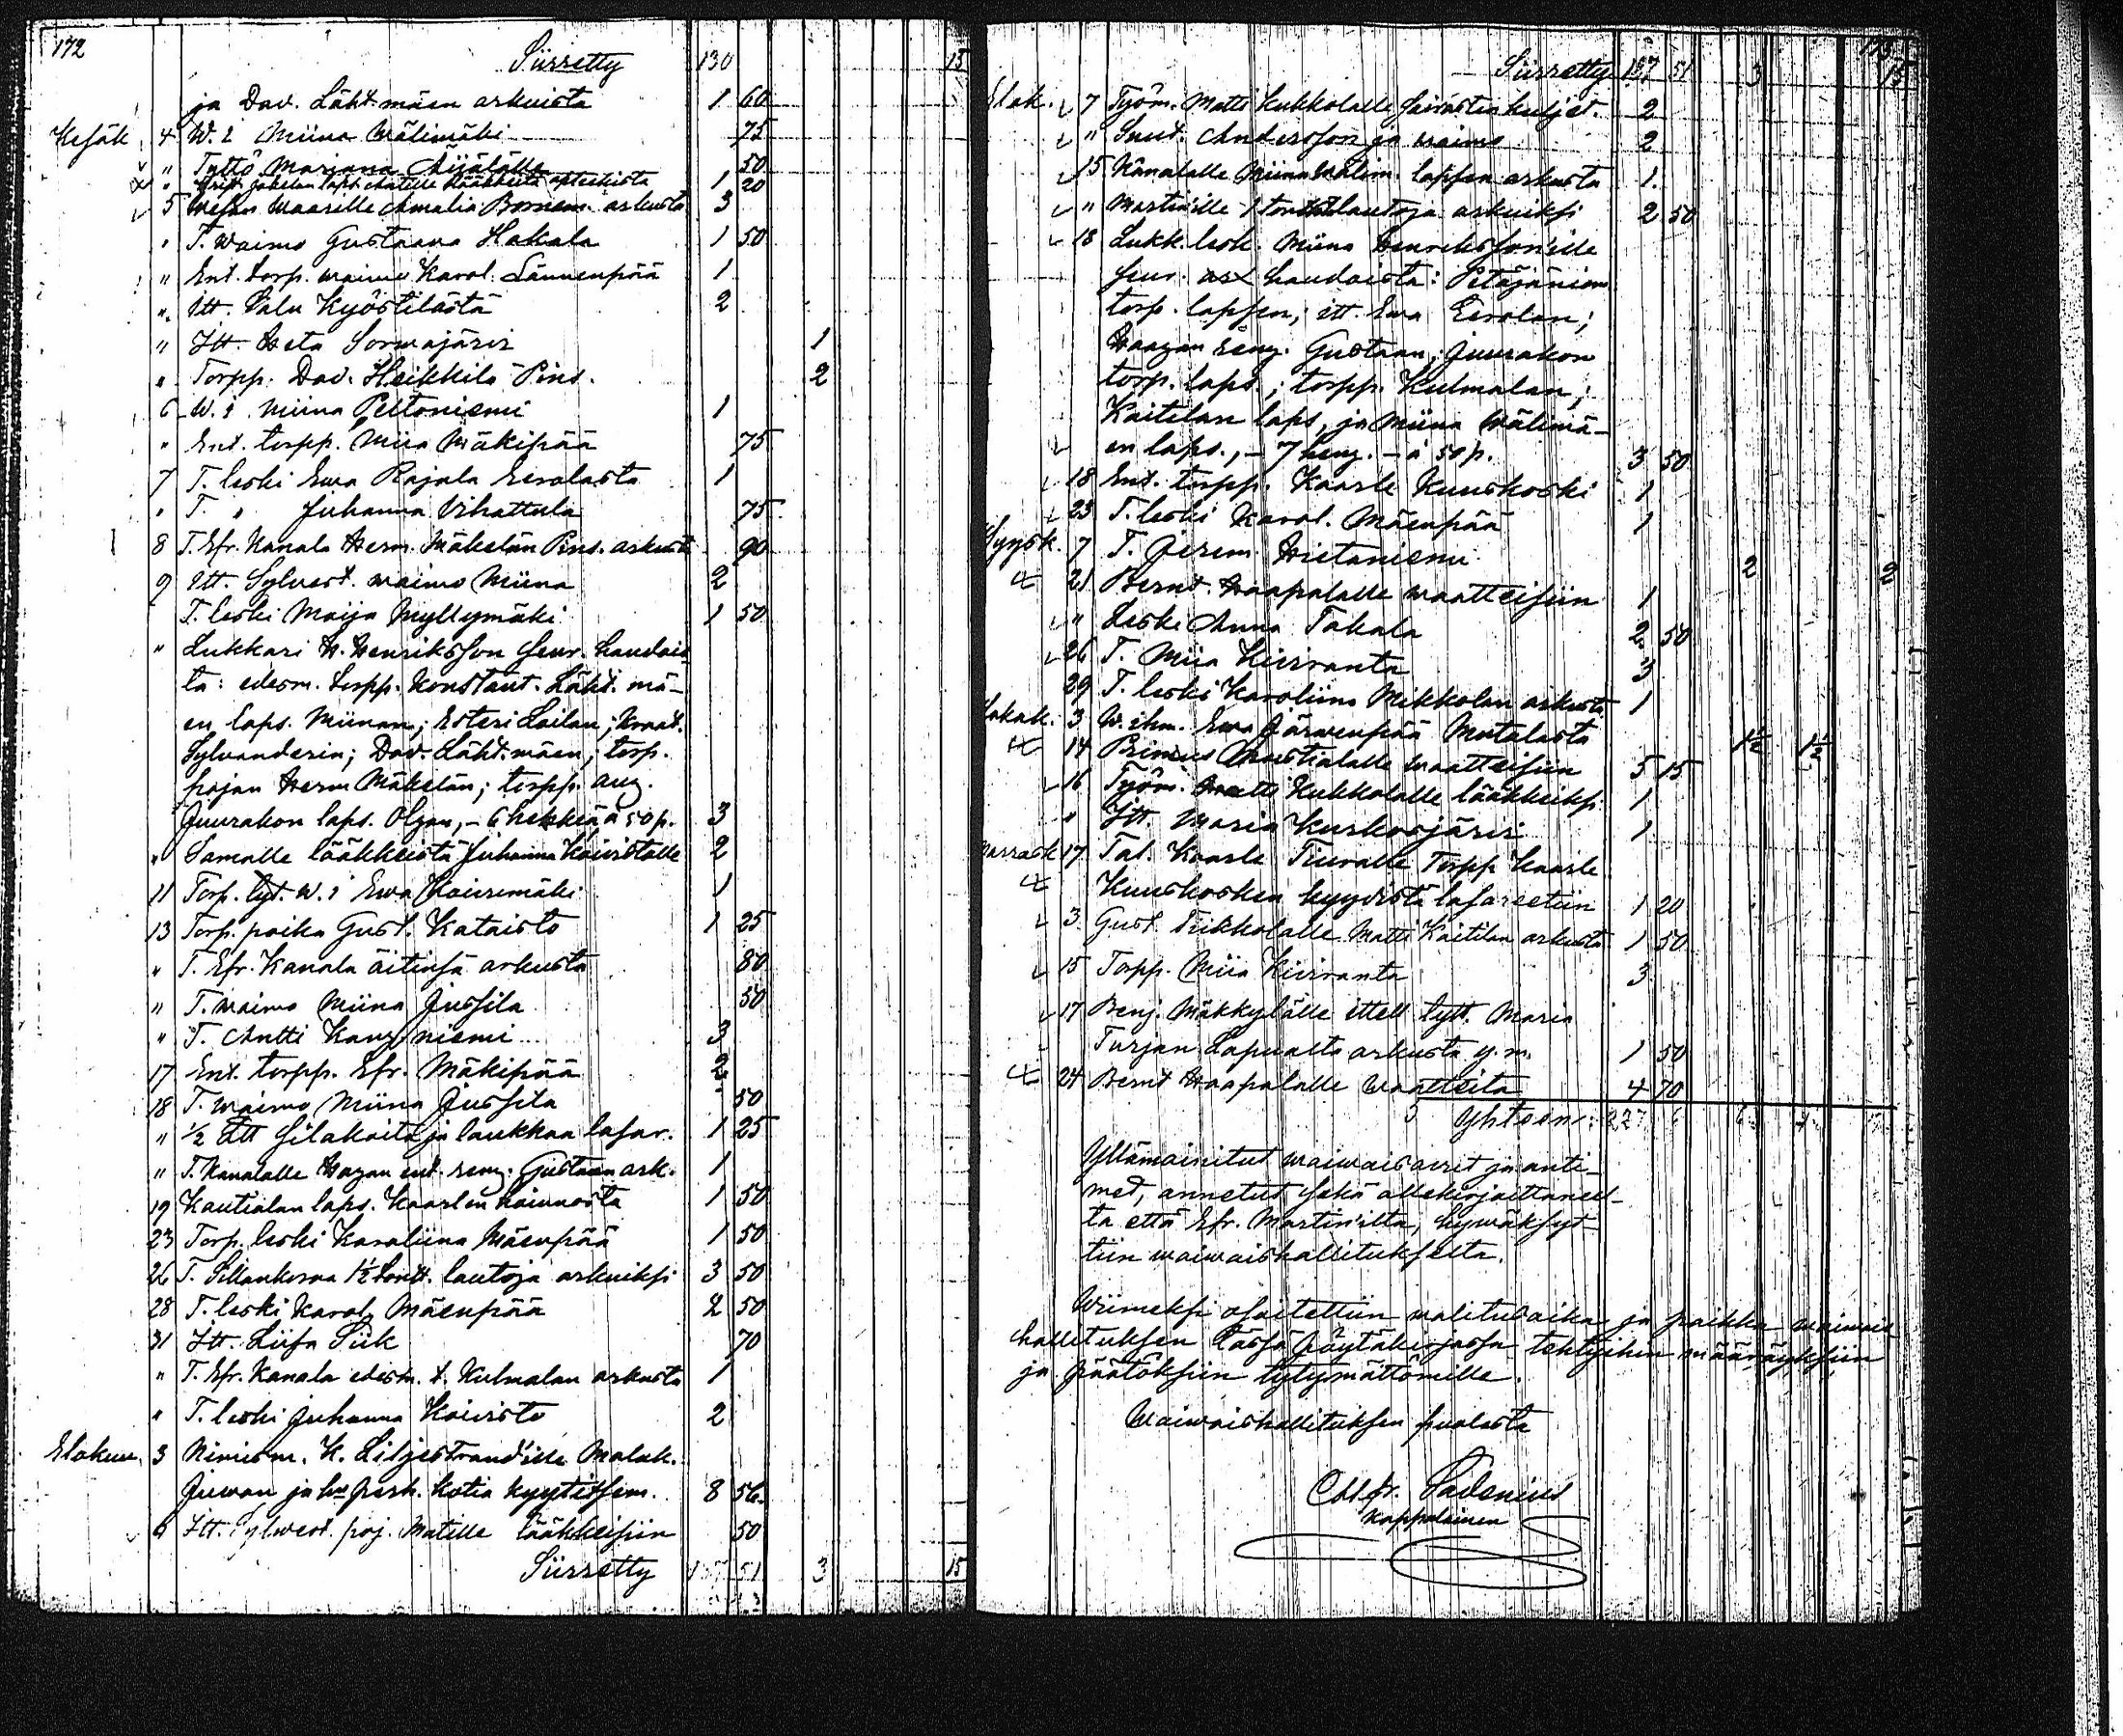 172
Siirretty 130 15
ja Dav. Läht.mäen arkuista 1 60
Kesäk. 4 W. i Miina Wälimäki 75
" Tyttö Marjana Äijälälle 50
" lääkkeitä apteekista 1 20
5 Waarille Amalia arkusta 3
" T. waimo Gustaava Hakala 1 50
" Ent. torp. waimo Karol. Lännenpää 1
" Itt. Salu Kyöstilästä 2
" Itt. Heta Sormajärvi 1
" Torpp. Dav. Heikkilä Pins. 2
6 W. i Miina Peltoniemi 1
" Ent. torpp. Miia Mäkipää 75
7 T. leski Ewa Rajala Eerolasta 1
" T. " Juhanna Vihattula 75
8 T. Efr. Kanala Herm. Mäkelän Pins. arkusta 90
9 Itt. Sylvest. waimo Miina 2
T. leski Maija Myllymäki 1 50
" Lukkari H. Henriksson seur. haudois-
ta: edesm. torpp. Konstant. Läht. mä-
en laps. Miinan; Esteri Lailan;
Sylvanderin; Dav. Läht.mäen; torp.
pojan Herm Mäkelän; torpp. Aug.
Juurakon laps. Olgan, - 6 henkeä à 50 p. 3
" Samalle lääkkeistä Juhanna Koivistolle 2
11 Torp. tyt. W. i Ewa Koivumäki 1
13 Torp. poika Gust. Kataisto 1 25
" T. Efr. Kanala äitinsä arkusta 80
" T. waimo Miina Jussila 50
" T. Antti Kangasniemi 3
17 Ent. torpp. Efr. Mäkipää 2
18 T. waimo Miina Jussila 50
" 1/2 silakoita ja laukkaa lasar. 1 25
" T. Kanalalle Hagan ent. reng. Gustaan ark. 1
19 Kautialan laps. Kaarlen hoinnosta 1 50
23 Torp. leski Karoliina Mäenpää 1 50
26 T. Sillankorva 1 1/2 tontt. lautoja arkuiksi 3 50
28 T. leski Karol. Mäenpää 2 50
31 Itt. Liisa Siik 70
" T. Efr. Kanala edesm. t. Kulmalan arkusta 1
" T. leski Juhanna Koivisto 2
Elokuu. 3 Nimism. K. Liljestrand'ille Malak.
Juwan ja perh. kotia kyytitsem. 8 56
6 Itt. Sylwest. poj. Matille lääkkeisiin 50
Siirretty 157 51 3 15
173
Siirretty 157 51 3 15
Elok. 7 Työm. Matti Kukkolalle sairasten kuljet. 2
" Andersson ja waimo 2
15 Kanalalle Miina Wälim. lapsen arkusta 1
" Martin'ille 1 lautoja arkuiksi 2 50
18 Lukk. lesk. Miina Henriksson'ille
seur. haudoista: Petäjäniem
torp. lapsen; itt. Ewa Eerolan;
Haagan reng. Gustaan; Juurakon
torp. laps.; torpp. Kulmalan;
Kaitilan laps, ja Miina Wälimä-
en laps., - 7 heng. - à 50 p. 3 50
18 Ent. torpp. Kaarle Kuuskoski 1
23 T. leski Karol. Mäenpää 1
Syysk. 7 T. Jerem Hietaniemi 2 2
21 Bernt. Haapalalle waatteisiin 1
" Leski Anna Takala 2 50
26 T. Miia Kiviranta 3
29 T. leski Karoliina Mikkolan arkusta 1
Lokak. 3 W. ihm. Ewa Järwenpää Mutalasta 1 1/2 1 1/2
14 waatteisiin 5 15
16 Työm. Matti Kukkolalle lääkkeiksi 1
" Itt. Maria Kurkosjärvi 1
Marrask 17 Tal. Kaarle Tiuralle Torpp Kaarle
Kuuskosken kyydistä lasareetiin 1 20
3 Gust. Tiikkolalle Matti Kaitilan arkusta 1 50
15 Torpp. Miia Kiviranta 3
17 Benj. Mäkkylälle ittell tytt. Maria
Turjan Lapualta arkusta y. m. 1 50
24 Bernt Haapalalle waatteita 4 70
Yhteens: 227
Yllämainitut waiwaisawut ja anti-
met, annetut sekä allekirjoittaneel-
ta että Efr. Martin'ilta, hywäksyt-
tiin waiwaishallitukselta.
Wiimeksi osoitettiin walitusaika ja paikka waiwais
hallituksen tässä pöytäkirjassa tehtyihin määräyksiin
ja päätöksiin tytymättömille.
Waiwaishallituksen puolesta
Sadenius
Kappalainen